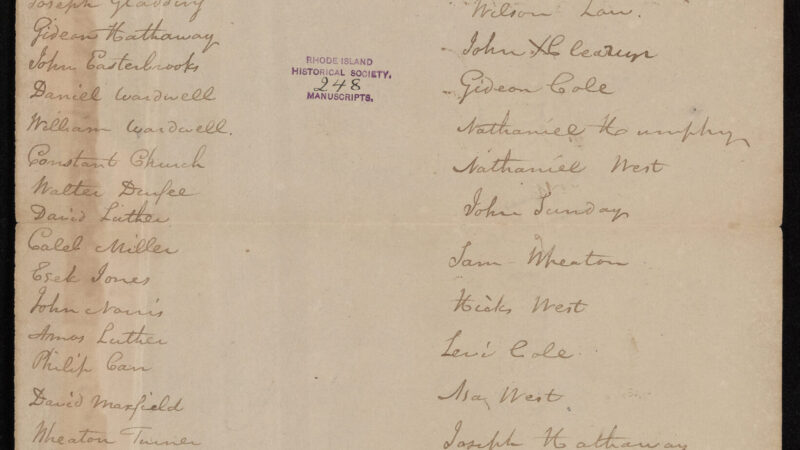 Joseph Gladding
Gideon Hathaway
John Easterbrooks
Daniel Wardwell
William Wardwell.
Constant Church
Walter Durfee
David Luther
Caleb Miller
Esek Jones
John Norris
Amos Luther
Philip Carr
David Maxfield
Wheaton Turner
RHODE ISLAND
HISTORICAL SOCIETY.
248
MANUSCRIPTS.
Wilson Law.
John
Gideon Cole
Nathaniel Humphry
Nathaniel West
John Sunday
Sam Wheaton
Hicks West
Levi Cole
Asa West
Joseph Hathaway